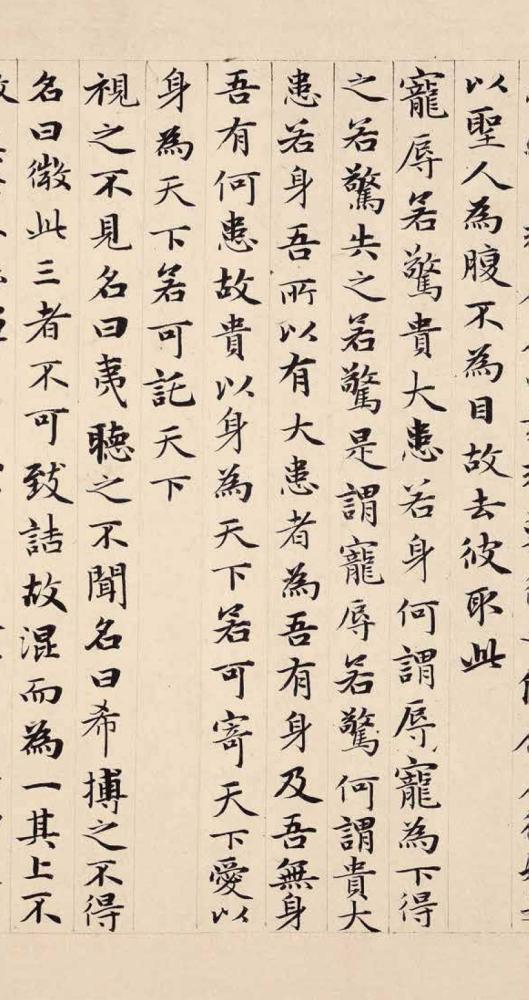 以聖人為腹不為目故去彼取此
寵辱若驚貴大患若身何謂辱寵為下得
之若驚失之若驚是謂寵辱若驚何謂貴大
患若身吾所以有大患者為吾有身及吾無身
吾有何患故貴以身為天下若可寄天下愛以
身為天下若可託天下
視之不見名曰夷聽之不聞名曰希搏之不得
名曰微此三者不可致詰故混而為一其上不